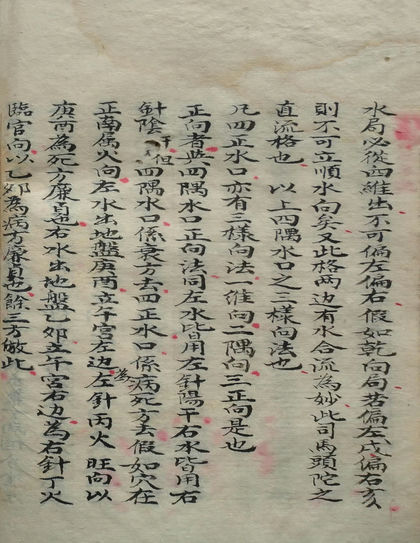 水局必從四維出不可偏左偏右假如乾向局若偏左戌偏右亥
則不可立順水向矣又此格兩边有水合流為妙此司馬頭陀之
直流格也　以上四隅水口之三樣向法也
凡四正水口亦有三樣向法一維向二隅向三正向是也
正向者與四隅水口正向法同左水皆用左針陽干右水皆用右
針陰干但四隅水口係衰方去四正水口係病死方去假如穴在
正南属火向左水出地盤庚酉立午宮左边為左針丙火旺向以
庚酉為死方廉貞右水出地盤乙夘立午宮右边為右針丁火
臨官向以乙夘為病方廉貞也餘三方倣此